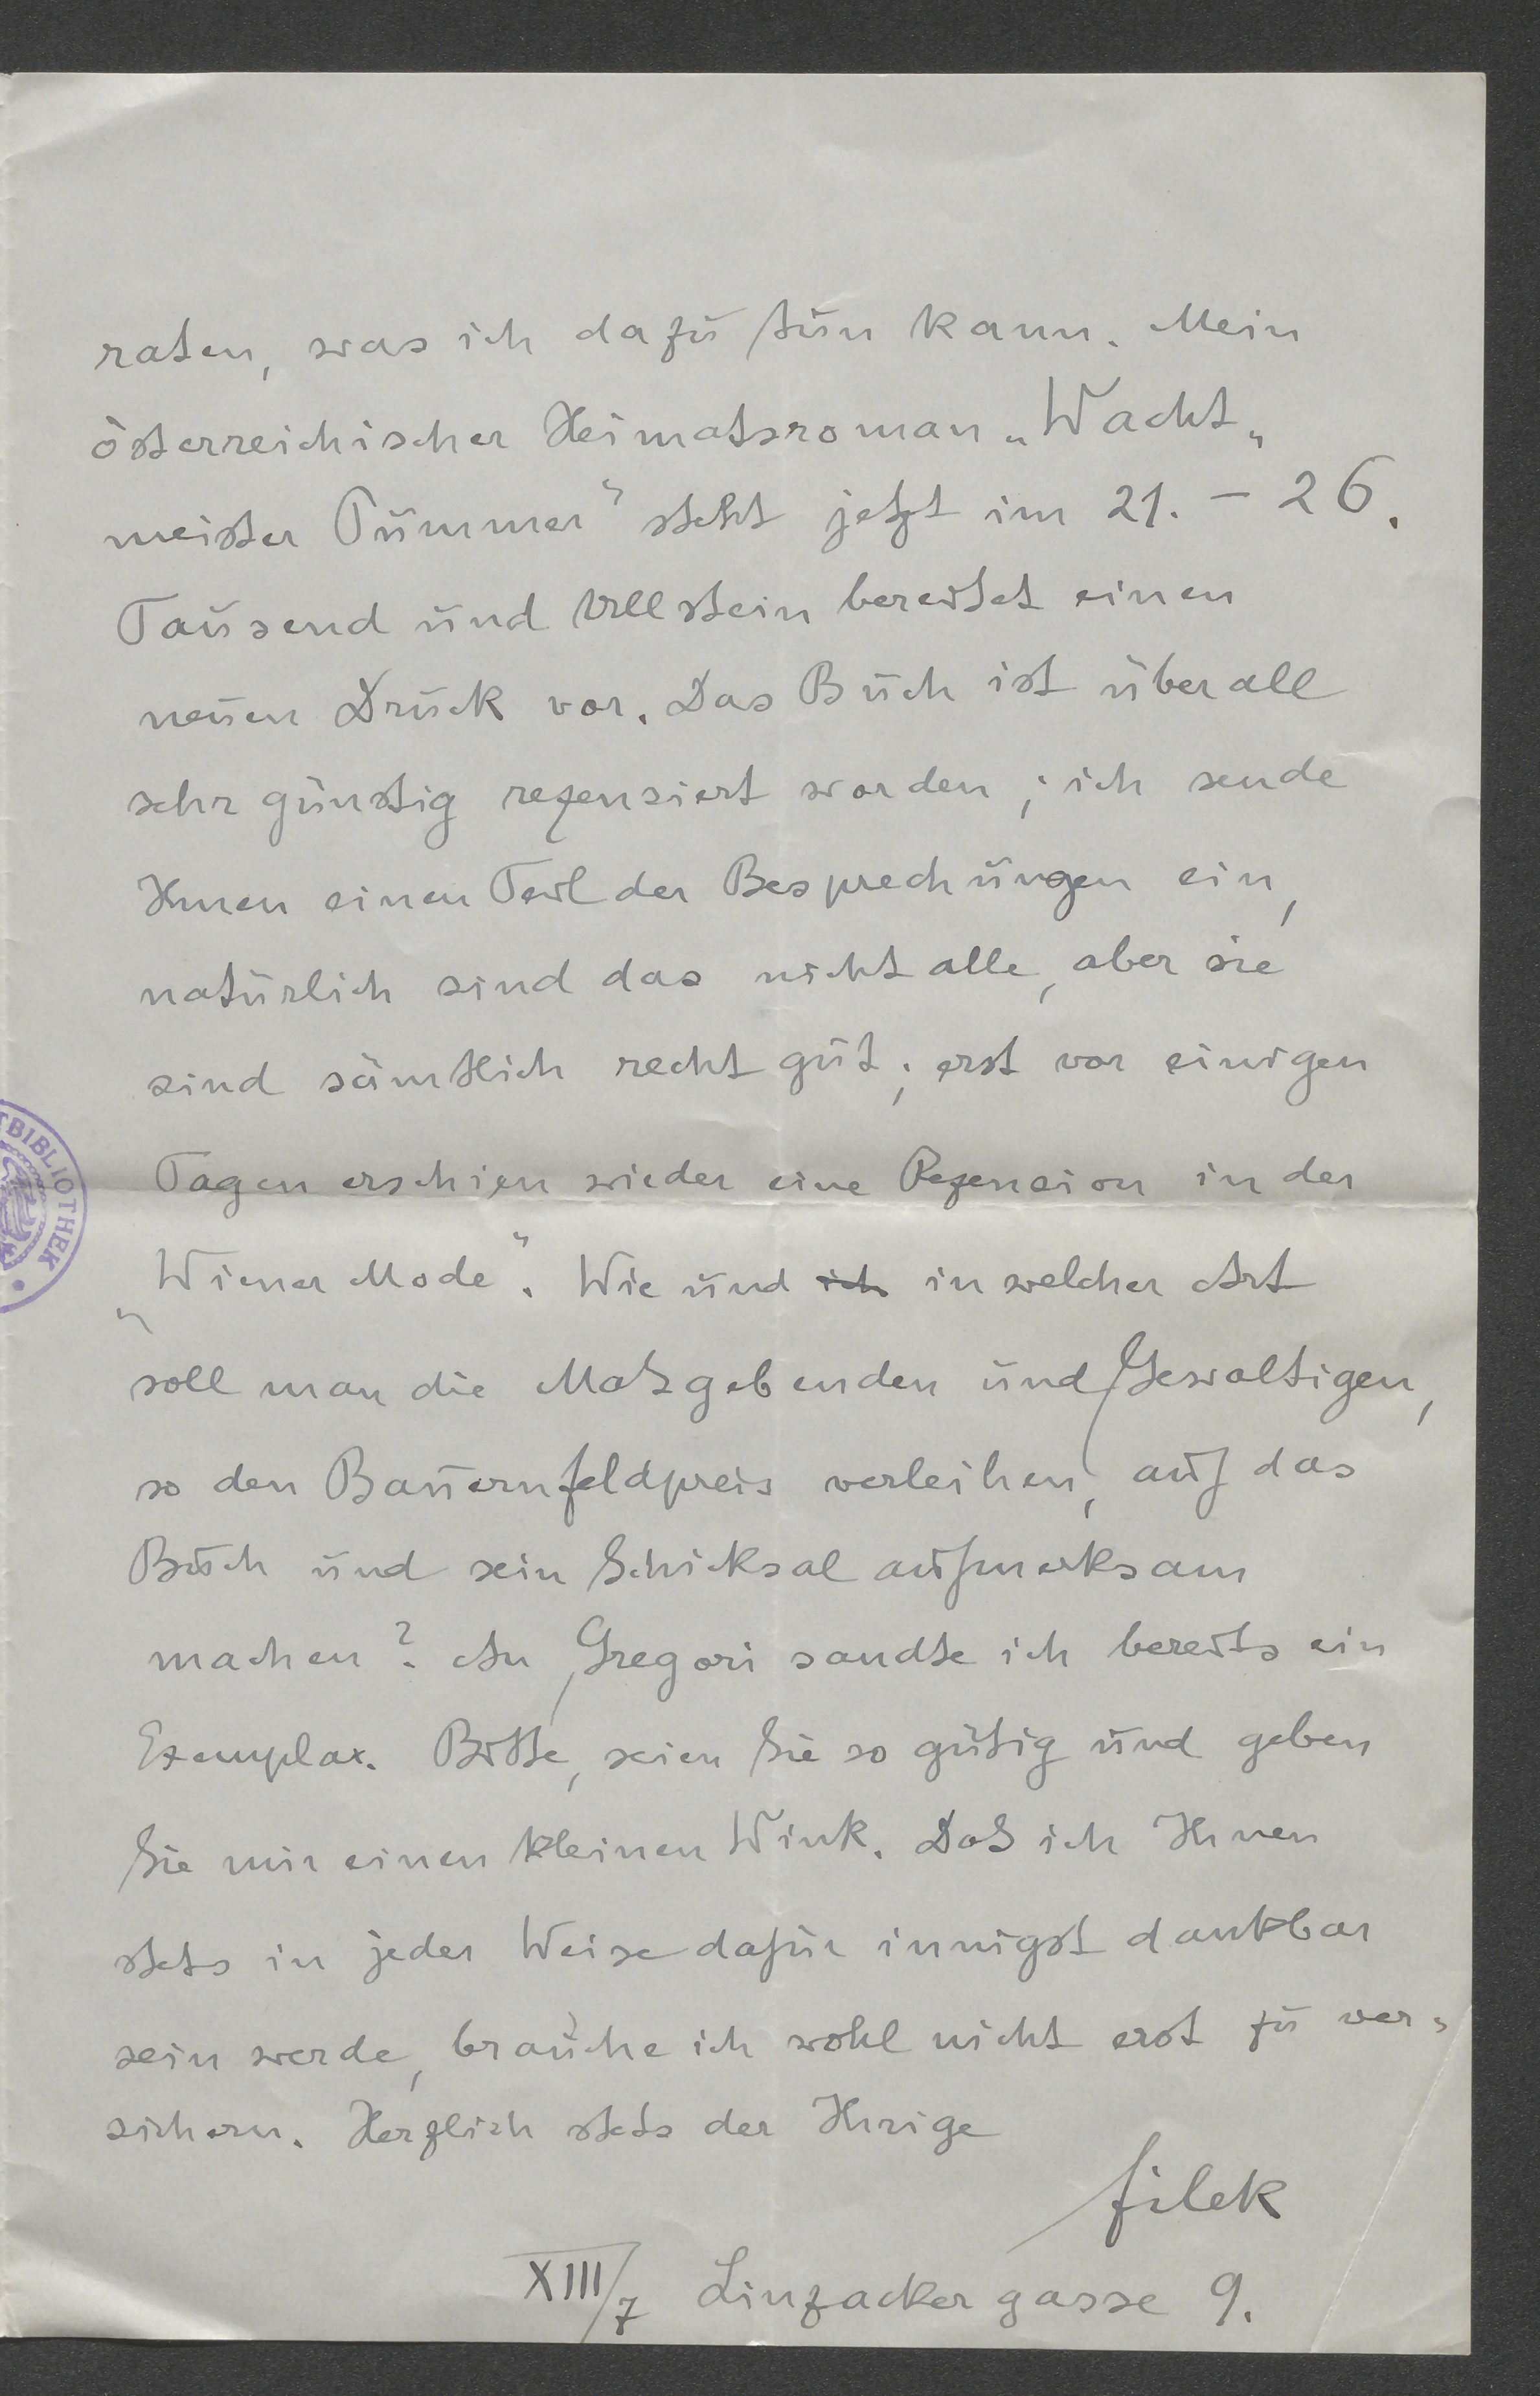 raten, was ich dazu tun kann. Mein
österreichischer Heimatsroman „Wacht„
meister Pummer“ steht jetzt im 21. – 26.
Tausend und Ullstein bereitet einen
neuen Druck vor. Das Buch ist überall
sehr günstig rezensiert worden; ich sende
Ihnen einen Teil der Besprechungen ein,
natürlich sind das nicht alle, aber sie
sind sämtlich recht gut; erst vor einigen
Tagen erschien wieder eine Rezension in der
„Wiener Mode“. Wie und ich in welcher Art
soll man die Maßgebenden und Gewaltigen,
so den Bauernfeldpreis verleihen, auf das
Buch und sein Schicksal aufmerksam
machen? An Gregori sandte ich bereits ein
Exemplar. Bitte, seien Sie so gütig und geben
Sie mir einen kleinen Wink. Daß ich Ihnen
stets in jeder Weise dafür innigst dankbar
sein werde, brauche ich wohl nicht erst zu ver=
sichern. Herzlich stets der Ihrige
filek
XIII/7 Linzackergasse 9.
TBIBLIOTHEK